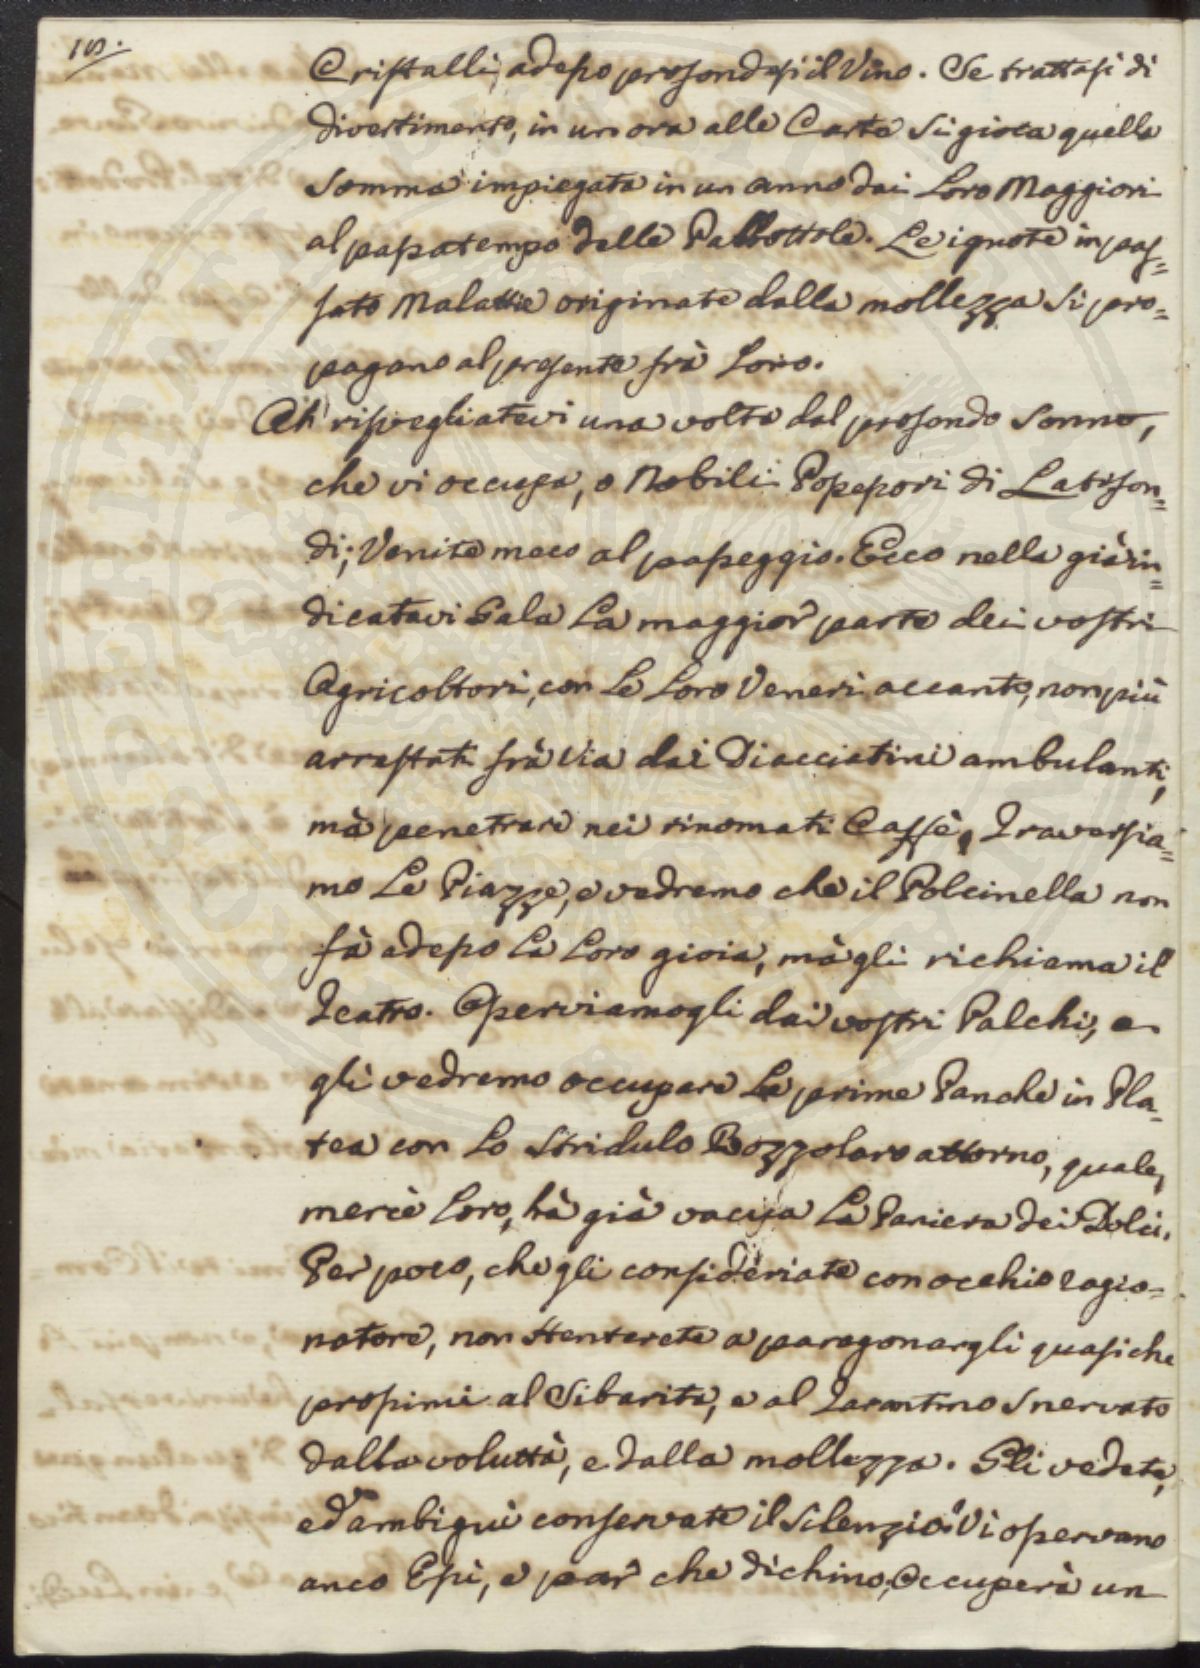 18.
Cristalli, adesso profondesi il Vino. Se trattasi di
divertimento, in un ora alle Carte Si gioca quella
Somma impiegata in un anno dai Loro Maggiori
al passatempo delle Pallottole. Le ignote in pas=
sato Malattie originate dalla mollezza Si pro=
pagano al presente frà Loro.
Ah risvegliatevi una volta dal profondo Sonno,
che vi occupa, o Nobili Possessori di Latifon=
di; Venite meco al passeggio. Ecco nella già in=
dicatavi Gala La maggior parte dei vostri
Agricoltori, con Le Loro Veneri accanto, non più
arrestati frà via dai Diacciatini ambulanti,
mà penetrare nei rinomati Caffè, Traversia=
mo Le Piazze, e vedremo che il Polcinella non
fà adesso La Loro gioia, mà gli richiama il
Teatro. Osserviamogli dai vostri Palchi, e
gli vedremo occupare Le prime Panche in Pla=
tea con Lo Stridulo Bozzolaro attorno, quale,
mercè Loro, hà già vacua La Paniera dei Dolci.
Per poco, che gli consideriate con occhio ragio=
natore, non Stenterete a paragonargli quasiche
prossimi al Sibarita, e al Tarantino Snervato
dalla voluttà, e dalla mollezza. Gli vedete,
ed ambigui conservate il Silenzio? Vi osservano
anco Essi, e par che dichino, Occuperà un